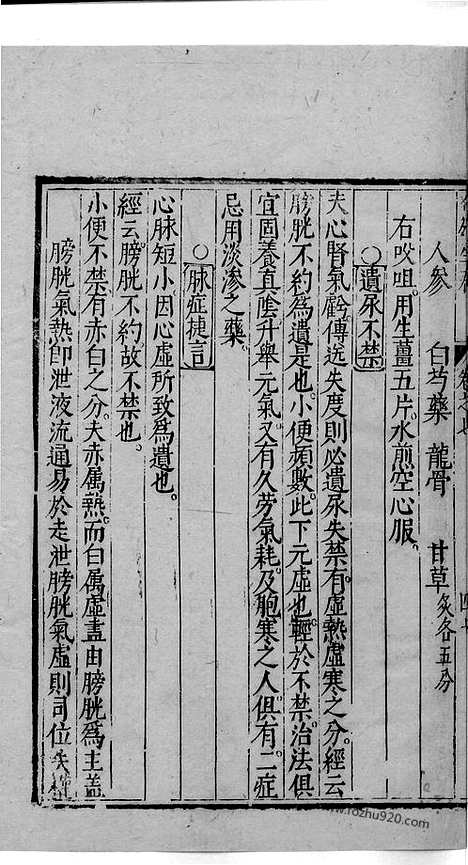 人參　白芍藥　龍骨　甘草炙各五分
右㕮咀用生薑五片水煎空心服。
○遺尿不禁
夫心腎氣虧傳送失度則必遺尿失禁有虛熱虛寒之分經云
膀胱不約為遺是也。小便頻數此下元虛也。輕於不禁治法俱
宜固養真陰升舉元氣。又有久勞氣耗及胞寒之人俱有一症
忌用淡滲之藥。
○脉症捷言
心脉短小因心虛所致為遺也。
經云。膀胱不約。故不禁也。
小便不禁有赤白之分。夫赤属熱。而白属虛。盖由膀胱為主盖
膀胱氣熱即泄液流通易於走泄膀胱氣虛則司位失
www.fozhu920.com